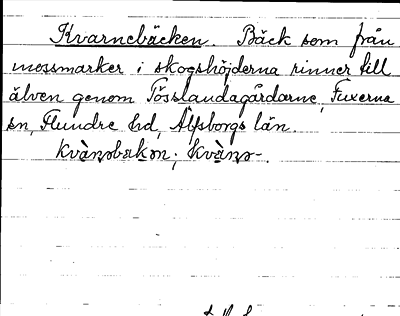 Kvarnebäcken. Bäck som från
mossmarker i skogshöjderna rinner till
älven genom Tösslandagårdarne, Fuxerna
sn, Flundre hd, Älfsborgs län.
kvàṇəbækən; kvàṇə-.